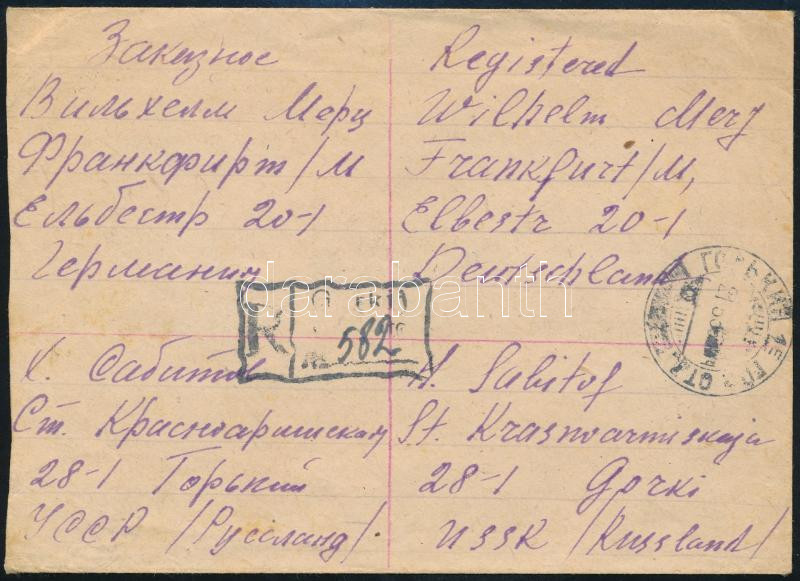 Заказное
Вильхелм Мерц
Франкфурт/М
Ельбестр 20-1
Германия
Registered
Wilhelm Merz
Frankfurt/M,
Elbestr 20-1
Deutschland
R
582
Х. Сабитов
Ст. Красноармискам
28-1 Горький
УССР /Руссланд/
H. Sabitof
St. Krasnoarmiskaja
28-1 Gorki
USSR /Russland/
darabanth